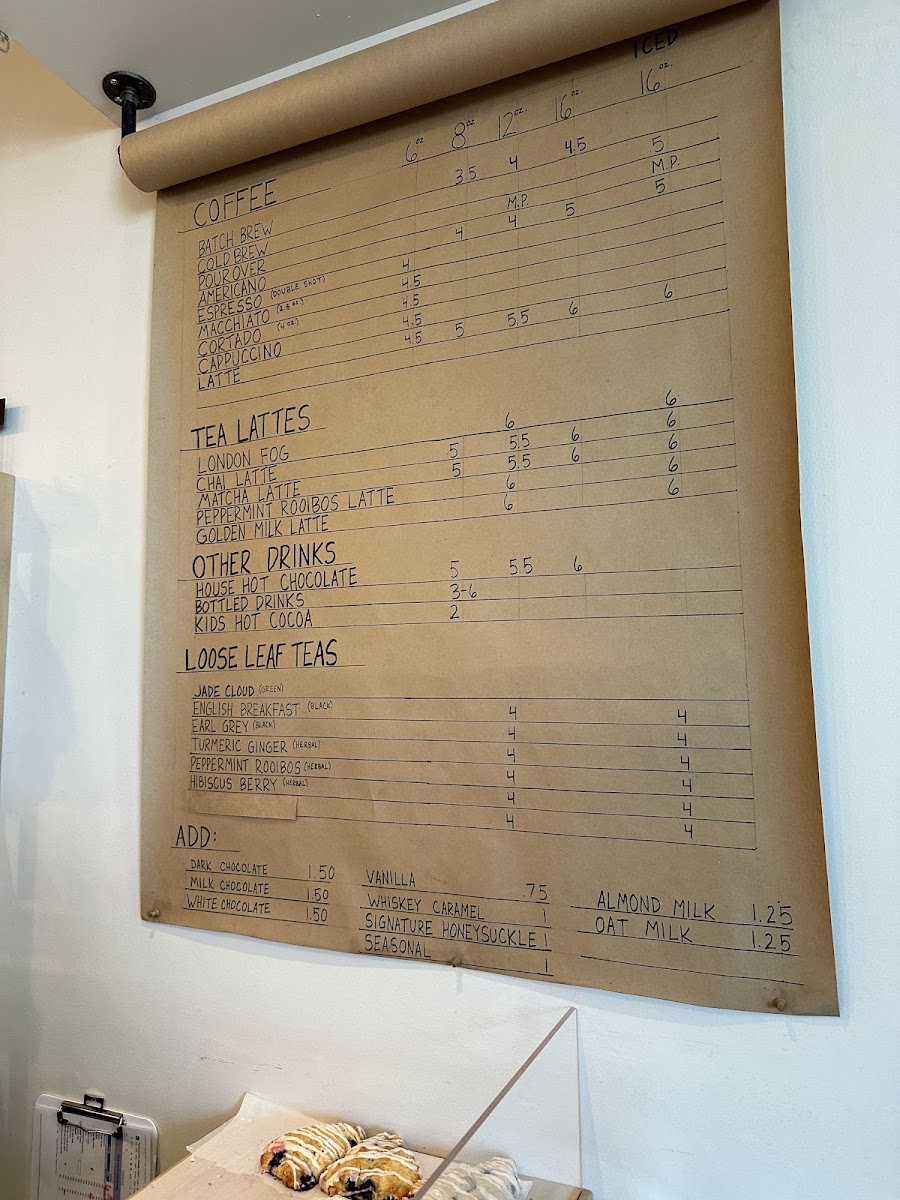 ICED
6 oz 8 oz. 12 oz. 16 oz. 16 oz.
COFFEE
BATCH BREW 3.5 4 4.5
COLD BREW 5
POUR OVER M.P. M.P.
AMERICANO 4 4 5 5
ESPRESSO (DOUBLE SHOT) 4
MACCHIATO (2.5 oz.) 4.5
CORTADO (4 oz.) 4.5
CAPPUCCINO 4.5
LATTE 4.5 5 5.5 6 6
TEA LATTES
LONDON FOG 6 6
CHAI LATTE 5 5.5 6 6
MATCHA LATTE 5 5.5 6 6
PEPPERMINT ROOIBOS LATTE 6 6
GOLDEN MILK LATTE 6 6
OTHER DRINKS
HOUSE HOT CHOCOLATE 5 5.5 6
BOTTLED DRINKS 3-6
KIDS HOT COCOA 2
LOOSE LEAF TEAS
JADE CLOUD (GREEN) 4 4
ENGLISH BREAKFAST (BLACK) 4 4
EARL GREY (BLACK) 4 4
TURMERIC GINGER (HERBAL) 4 4
PEPPERMINT ROOIBOS (HERBAL) 4 4
HIBISCUS BERRY (HERBAL) 4 4
ADD:
DARK CHOCOLATE 1.50
MILK CHOCOLATE 1.50
WHITE CHOCOLATE 1.50
VANILLA .75
WHISKEY CARAMEL 1
SIGNATURE HONEYSUCKLE 1
SEASONAL 1
ALMOND MILK 1.25
OAT MILK 1.25